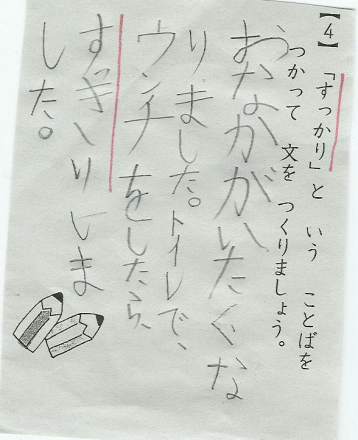 【4】
「すっかり」と いう ことばを
つかって 文を つくりましょう。
おなかがいたくな
りました。トイレで、
ウンチをしたら、
すっきりしま
した。